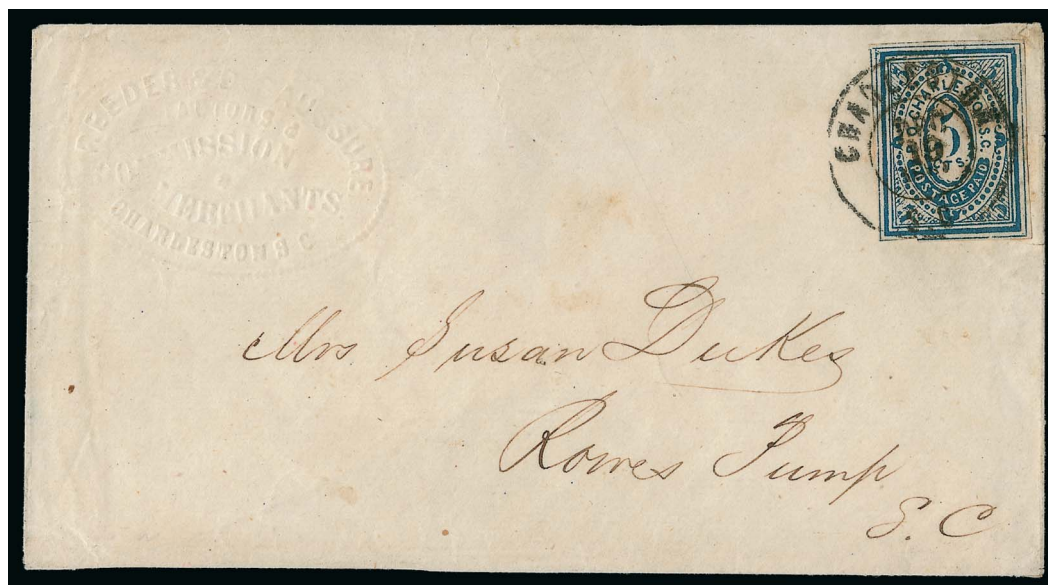 REEDER & DE SAUSSURE
FACTORS &
COMMISSION
MERCHANTS
CHARLESTON S C
CHARLESTON
S.C.
P.O. CHARLESTON S.C.
5
CTS.
POSTAGE PAID
Mrs Susan Dukes
Rowes Pump
S. C